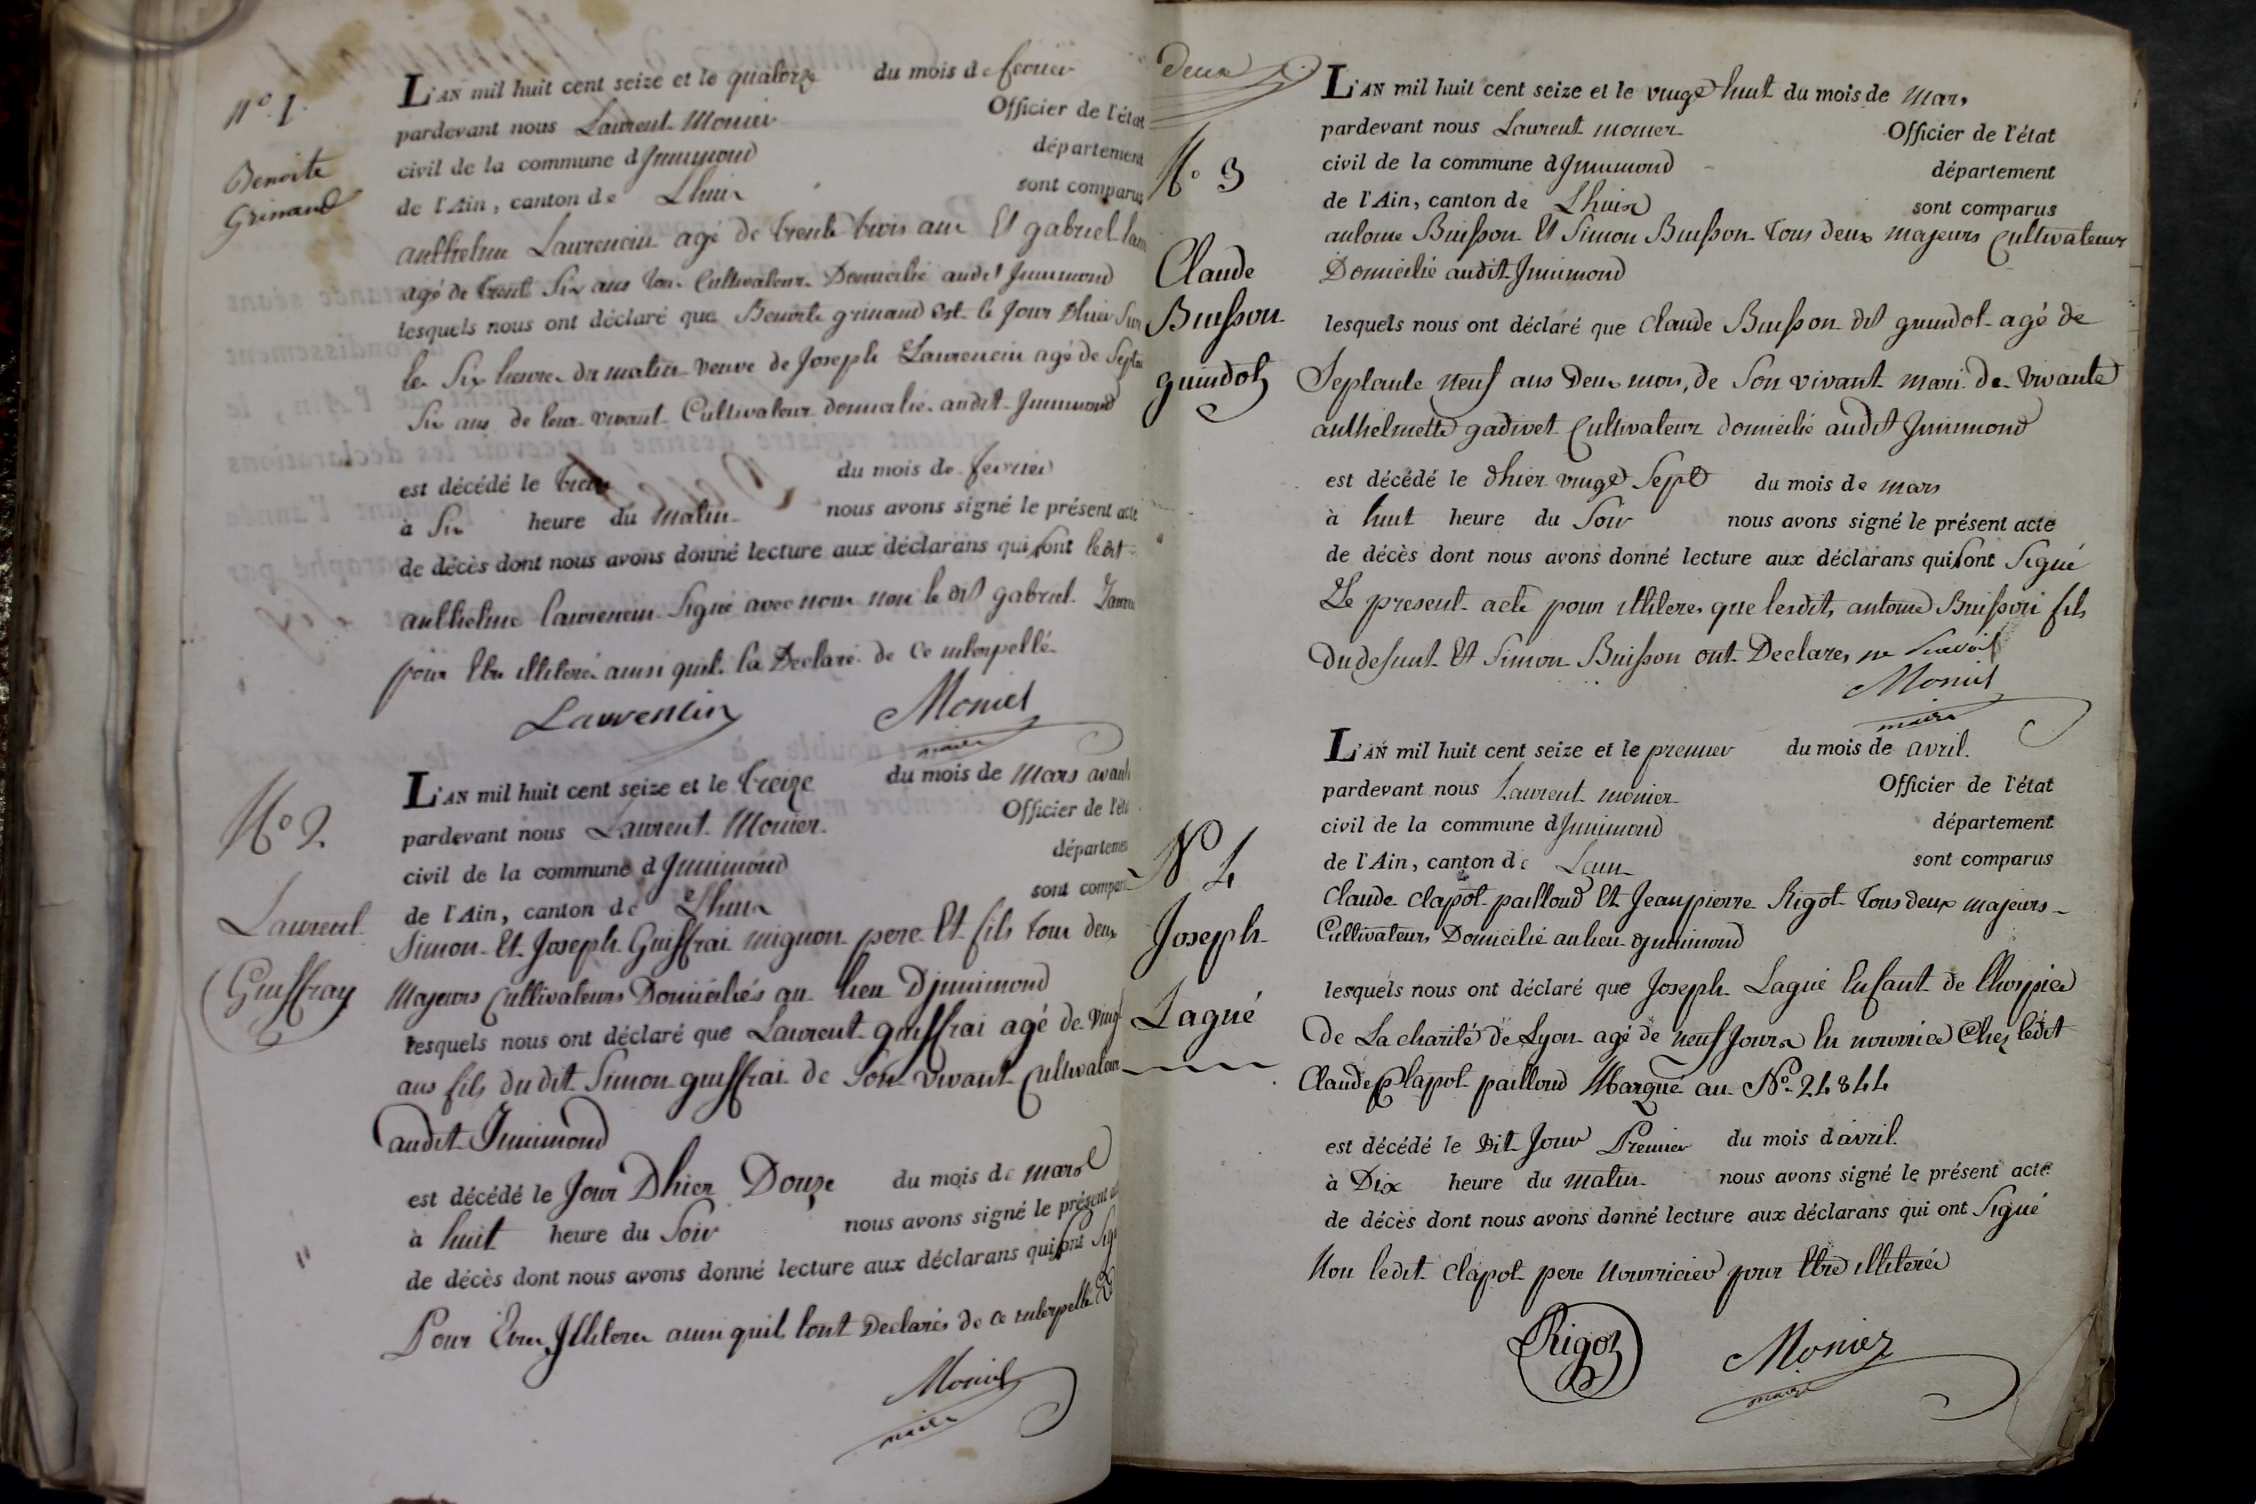 N.º 1.
Benoite
Grinand
L'AN mil huit cent seize et le quatorze du mois de fevrier
pardevant nous Laurent Monier Officier de l'état
civil de la commune d Jnnimond département
de l'Ain, canton de Lhuix sont comparus
anthelme Laurencin agé de trente trois ans Et gabriel
agé de trente Six ans tous Cultivateurs Domicilié audit Jnnimond
lesquels nous ont déclaré que Benoite grinand Est le Jour Dhier Sur
les Six heures du matin veuve de Joseph Laurencin agé de Septante
Six ans de leur vivant Cultivateur domicilié audit Jnnimond
est décédé le treize du mois de fevrier
à Six heure du matin nous avons signé le présent acte
de décès dont nous avons donné lecture aux déclarans qui sont ledit
anthelme Laurencin Signé avec nous non le dit gabriel
pour Etre illiteré ainsi quil la Declaré de ce interpellé
Laurentin Monier
maire
N.º 2.
Laurent
Guiffray
L'AN mil huit cent seize et le treize du mois de Mars avant
pardevant nous Laurent Monier Officier de l'état
civil de la commune d Jnnimond département
de l'Ain, canton de Lhuix sont comparus
Simon Et Joseph Guiffrai mignon pere Et fils tous deux
Majeurs Cultivateurs Domiciliés au lieu Djnnimond
lesquels nous ont déclaré que Laurent guiffrai agé de vingt
ans fils du dit Simon guiffrai de Son vivant Cultivateur
audit Jnnimond
est décédé le Jour Dhier Douze du mois de mars
à huit heure du Soir nous avons signé le présent acte
de décès dont nous avons donné lecture aux déclarans qui sont Signé
Pour Etre Jlliteres ainsi quil lont Declarés de ce interpellé
Monier
maire
deux
N.º 3
Claude
Buisson
guindoz
L'AN mil huit cent seize et le vingt huit du mois de Mars
pardevant nous Laurent monier Officier de l'état
civil de la commune d Jnnimond département
de l'Ain, canton de Lhuix sont comparus
antoine Buisson Et Simon Buisson tous deux majeurs Cultivateurs
Domicilié audit Jnnimond
lesquels nous ont déclaré que Claude Buisson dit guindot agé de
Septante neuf ans deux mois, de Son vivant mari de vivante
anthelmette gadivet Cultivateur domicilié audit Jnnimond
est décédé le dhier vingt Sept du mois de mars
à huit heure du Soir nous avons signé le présent acte
de décès dont nous avons donné lecture aux déclarans qui sont Signé
Le present acte pour illiteres que lesdits antoine Buisson fils
du defunt Et Simon Buisson ont Declares ne Scavoir
Monier
maire
N.º 4
Joseph
Lagué
L'AN mil huit cent seize et le premier du mois de avril.
pardevant nous Laurent monier Officier de l'état
civil de la commune d Jnnimond département
de l'Ain, canton de sont comparus
Claude Clapot pailloud Et Jeanpierre Rigot tous deux majeurs
Cultivateurs Domicilié au lieu djnnimond
lesquels nous ont déclaré que Joseph Lagué Enfant de lhospice
de La charité de Lyon agé de neuf Jours En nourrice Chez ledit
Claude Clapot pailloud Marqué au N.º 24844
est décédé le Dit Jour Premier du mois d'avril.
à Dix heure du matin nous avons signé le présent acte
de décès dont nous avons donné lecture aux déclarans qui ont Signé
Non ledit Clapot pere nourricier pour Etre illiteréé
Rigoz Monier
maire